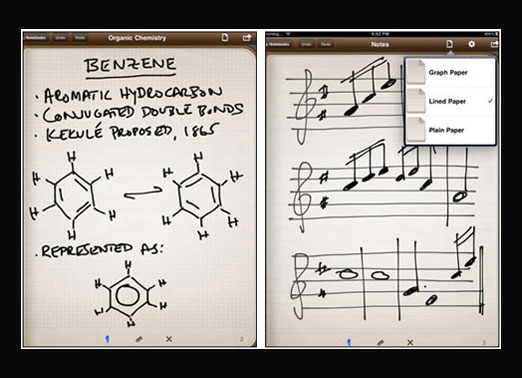 Notebooks
Undo
Redo
Organic Chemistry
BENZENE
· AROMATIC HYDROCARBON
· CONJUGATED DOUBLE BONDS
· KEKULÉ PROPOSED, 1865
H
H H
H H
H
H
H H
H H
H
· REPRESENTED AS:
H
H H
H H
H
2
9:52 PM
100%
Notebooks
Undo
Redo
Notes
Graph Paper
Lined Paper ✓
Plain Paper
5